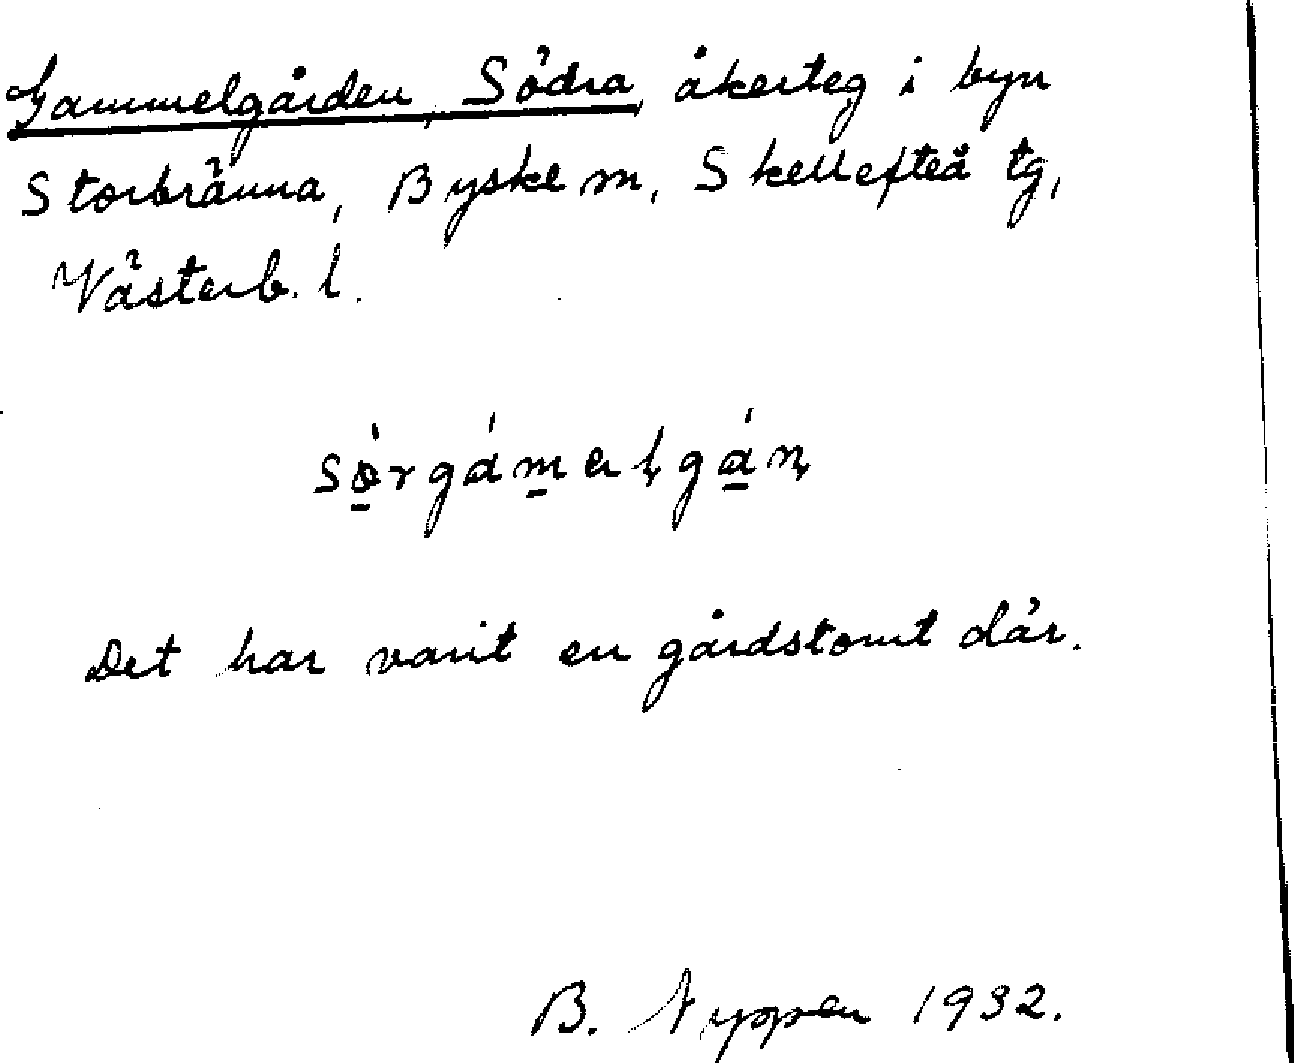 Gammelgården, Södra, åkerteg i byn
Storbränna, Byske sn, Skellefteå tg,
Västerb. l.
Det har varit en gårdstomt där.
B. 1932.